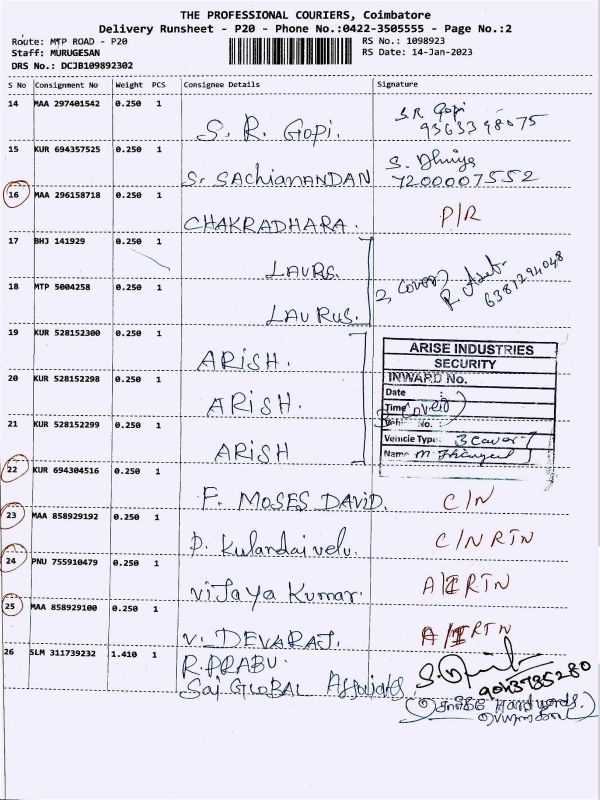 THE PROFESSIONAL COURIERS, Coimbatore
Delivery Runsheet - P20 - Phone No.:0422-3505555 - Page No.:2
Route: MTP ROAD - P20 RS No.: 1098923
Staff: MURUGESAN RS Date: 14-Jan-2023
DRS No.: DCJB109892302
S No Consignment No Weight PCS Consignee Details Signature
14 MAA 297401542 0.250 1 S. R. Gopi. S.R Gopi
9363398075
15 KUR 694357525 0.250 1 Sr SACHIANANDAN S. Dhivya
7200007552
16 MAA 296158718 0.250 1 CHAKRADHARA. P/R
17 BHJ 141929 0.250 1 LAURS.
18 MTP 5004258 0.250 1 LAURUS. 2 cover R 6381294048
19 KUR 528152300 0.250 1 ARISH.
20 KUR 528152298 0.250 1 ARISH.
21 KUR 528152299 0.250 1 ARISH
ARISE INDUSTRIES
SECURITY
INWARD No.
Date
Time
Vehi No.
Vehicle Type 3 cover
Name M
22 KUR 694304516 0.250 1 F. MOSES DAVID. C/N
23 MAA 858929192 0.250 1 P. Kulandaivelu. C/N RTN
24 PNU 755910479 0.250 1 Vijaya Kumar. A/I RTN
25 MAA 858929100 0.250 1 V. DEVARAJ. A/I RTN
26 SLM 311739232 1.410 1 R. PRABU.
Sai GLOBAL Associates S.
9043785280